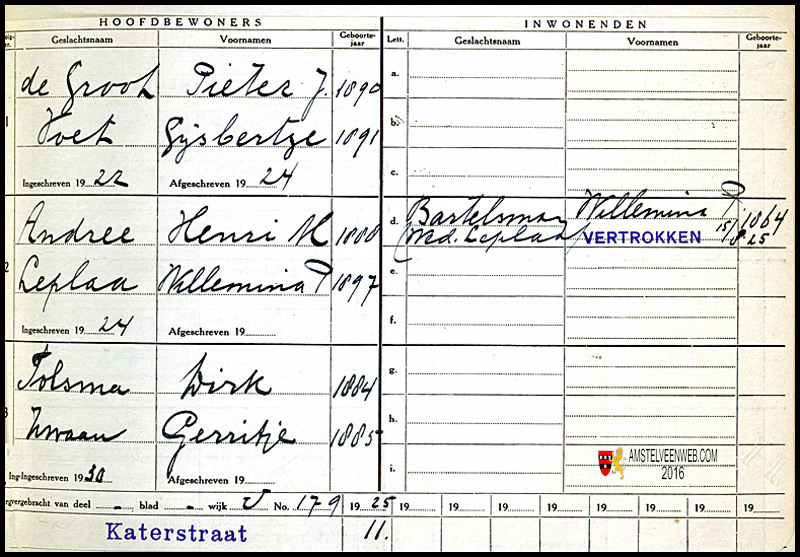 HOOFDBEWONERS INWONENDEN
Geslachtsnaam Voornamen Geboorte-jaar Lett. Geslachtsnaam Voornamen Geboorte-jaar
a.
de Groot Pieter J. 1890
b.
Voet Gijsbertje 1891
c.
Ingeschreven 19 22 Afgeschreven 19 24
d. Bartelsman Willemina P. 1864
Andree Henri M 1888 (Wed. Leplaa) VERTROKKEN 15/8 25
e.
Leplaa Willemina P 1897
f.
Ingeschreven 19 24 Afgeschreven 19
g.
Tolsma Dirk 1884
h.
Zwaan Gerritje 1885
AMSTELVEENWEB.COM
2016
i.
Ingeschreven 19 30 Afgeschreven 19
vergebracht van deel - blad - wijk V No. 179 19 25 19 19 19 19 19 19 19 19
Katerstraat 11.